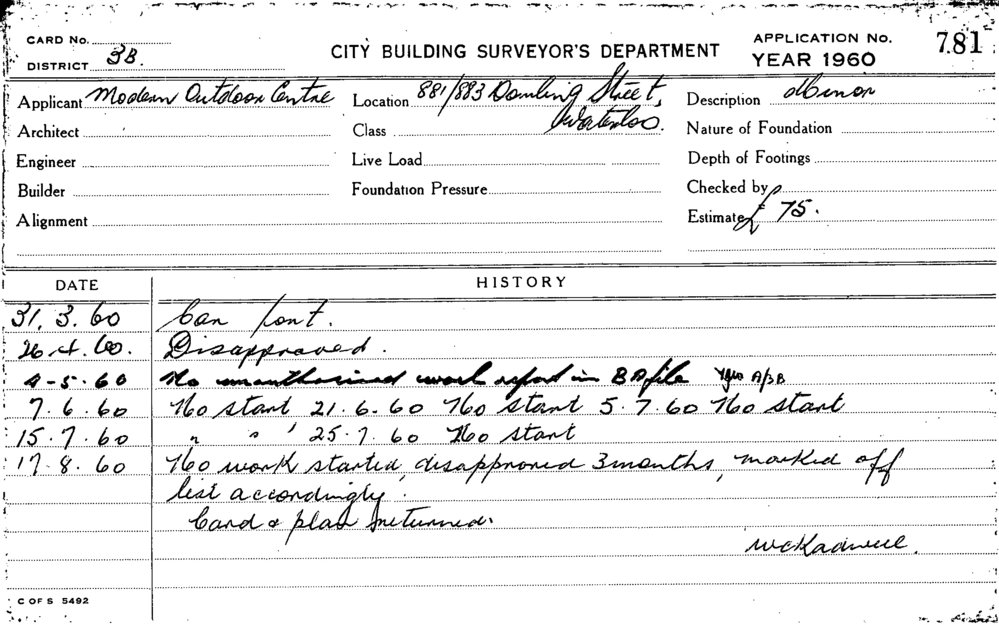 CARD No.
DISTRICT 3B.
CITY BUILDING SURVEYOR'S DEPARTMENT
APPLICATION No. 781
YEAR 1960
Applicant Modern Outdoor Centre
Location 881/883 Dowling Street, Waterloo.
Description Minor
Architect
Class
Nature of Foundation
Engineer
Live Load
Depth of Footings
Builder
Foundation Pressure
Checked by
Alignment
Estimate £75.
DATE HISTORY
31.3.60
26.4.60. Disapproved.
4-5.60 No unauthorised work report in BA file
7.6.60 No start 21.6.60 No start 5.7.60 No start
15.7.60 " " 25.7.60 No start
17.8.60 No work started, disapproved 3 months, marked off
list accordingly.
Card & plan returned.
C OF S 5492